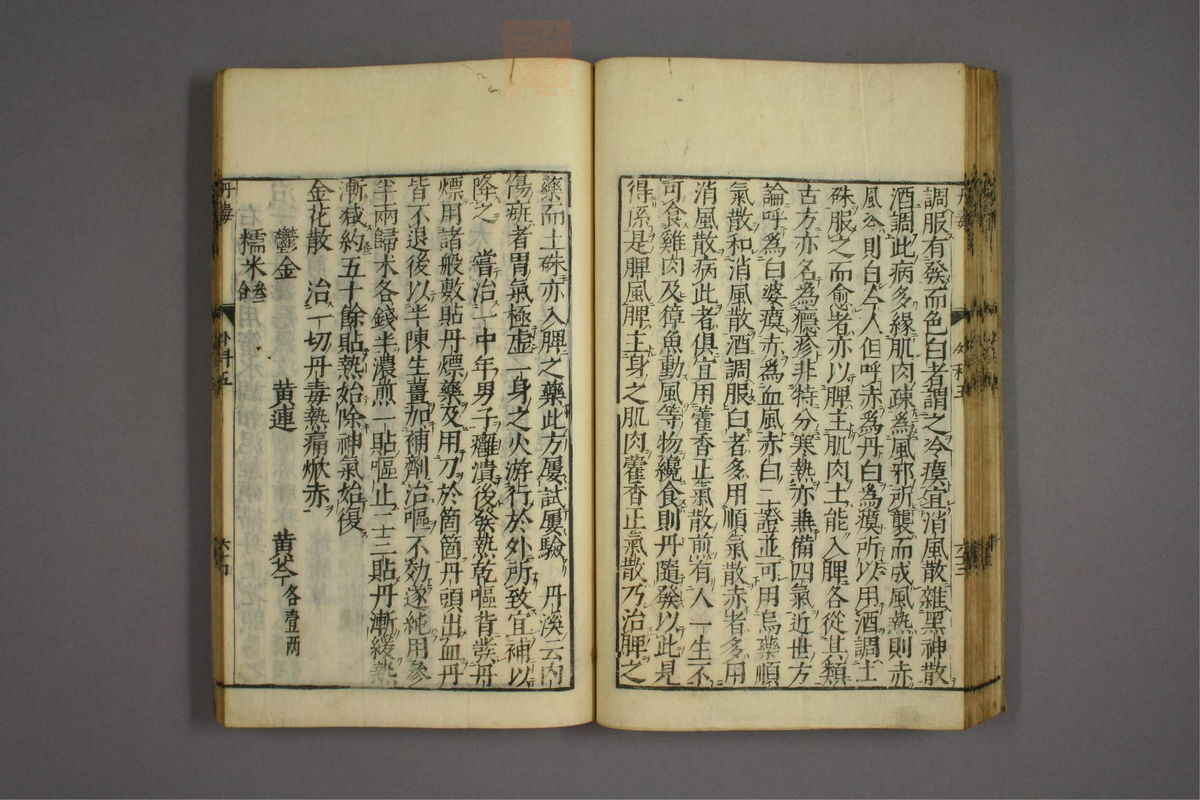 調服有發而色白者謂之冷瘼宜消風散雜黑神散
酒調此病多緣肌肉疎爲風邪所襲而成風熱則赤
風冷則白今人但呼赤爲丹白爲瘼所以用酒調土
硃服之而愈者亦以脾主肌肉土能入脾各從其類
古方亦名為癮疹非特分寒熱亦兼備四氣近世方
論呼爲白婆瘼赤為血風赤白二證並可用烏藥順
氣散和消風散酒調服白者多用順氣散赤者多用
消風散病此者俱宜用藿香正氣散煎有人一生不
可食雞肉及獐魚動風等物纔食則丹隨發以此是
得係是脾風脾主身之肌肉藿香正氣散乃治脾之
藥而土硃亦入脾之藥此方屢試屢驗 丹溪云内
傷斑者胃氣極虛一身之火游行於外所致宜補以
降之 嘗治一中年男子癰潰後發熱乾嘔背發丹
熛用諸般敷貼丹熛藥及用刀於箇箇丹頭出血丹
皆不退後以半陳生薑加補劑治嘔不効遂純用參
半兩歸术各錢半濃煎一貼嘔止二三貼丹漸緩熱
漸減約五十餘貼熱始除神氣始復
金花散 治一切丹毒熱痛焮赤
鬱金 黄連 黄芩各壹两
糯米叁合
丹毒
六十四